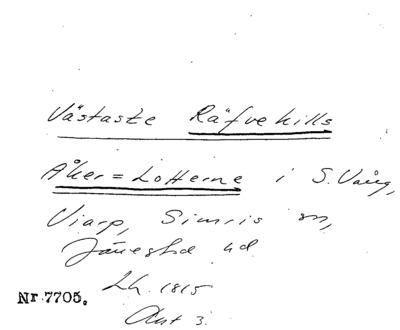 Västaste Räfvekills
Åker=Lotterne i S. Vång,
Viarp, Simris sn,
Järrestad hd
Lh. 1815
Nr 7705.
Akt 3.